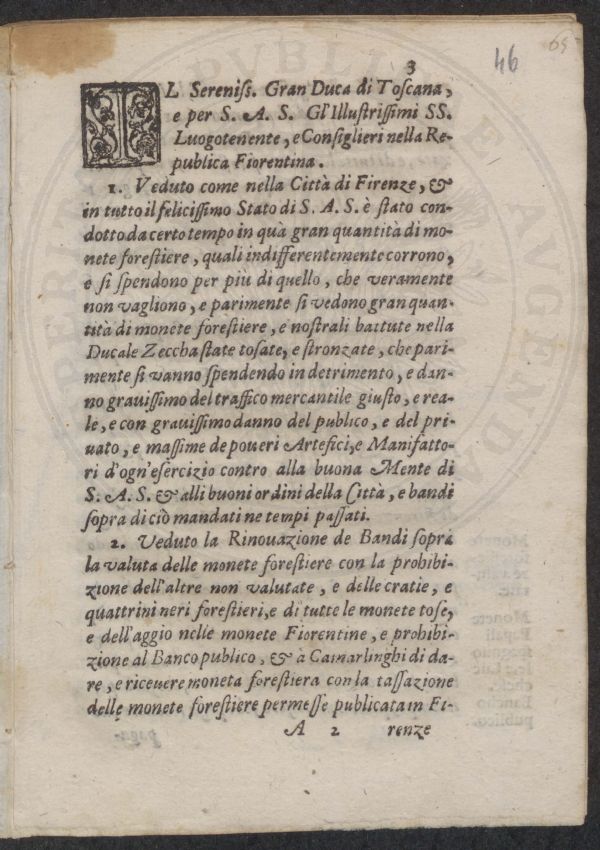 3
46
65
IL Sereniſs. Gran Duca di Toſcana,
e per S. A. S. Gl'Illuſtriſſimi SS.
Luogotenente, e Conſiglieri nella Re-
publica Fiorentina.
1. Veduto come nella Città di Firenze, &
in tutto il feliciſſimo Stato di S. A. S. è ſtato con-
dotto da certo tempo in quà gran quantità di mo-
nete foreſtiere, quali indifferentemente corrono,
e ſi ſpendono per più di quello, che veramente
non vagliono, e parimente ſi vedono gran quan-
tità di monete foreſtiere, e noſtrali battute nella
Ducale Zeccha ſtate toſate, e ſtronzate, che pari-
mente ſi vanno ſpendendo in detrimento, e dan-
no grauiſſimo del traffico mercantile giuſto, e rea-
le, e con grauiſſimo danno del publico, e del pri-
uato, e maſſime de poueri Artefici, e Manifatto-
ri d'ogn'eſercizio contro alla buona Mente di
S. A. S. & alli buoni ordini della Città, e bandi
ſopra di ciò mandati ne tempi paſſati.
2. Veduto la Rinouazione de Bandi ſopra
la valuta delle monete foreſtiere con la prohibi-
zione dell'altre non valutate, e delle cratie, e
quattrini neri foreſtieri, e di tutte le monete toſe,
e dell'aggio nelle monete Fiorentine, e prohibi-
zione al Banco publico, & à Camarlinghi di da-
re, e riceuere moneta foreſtiera con la taſſazione
delle monete foreſtiere permeſſe publicata in Fi-
A 2 renze